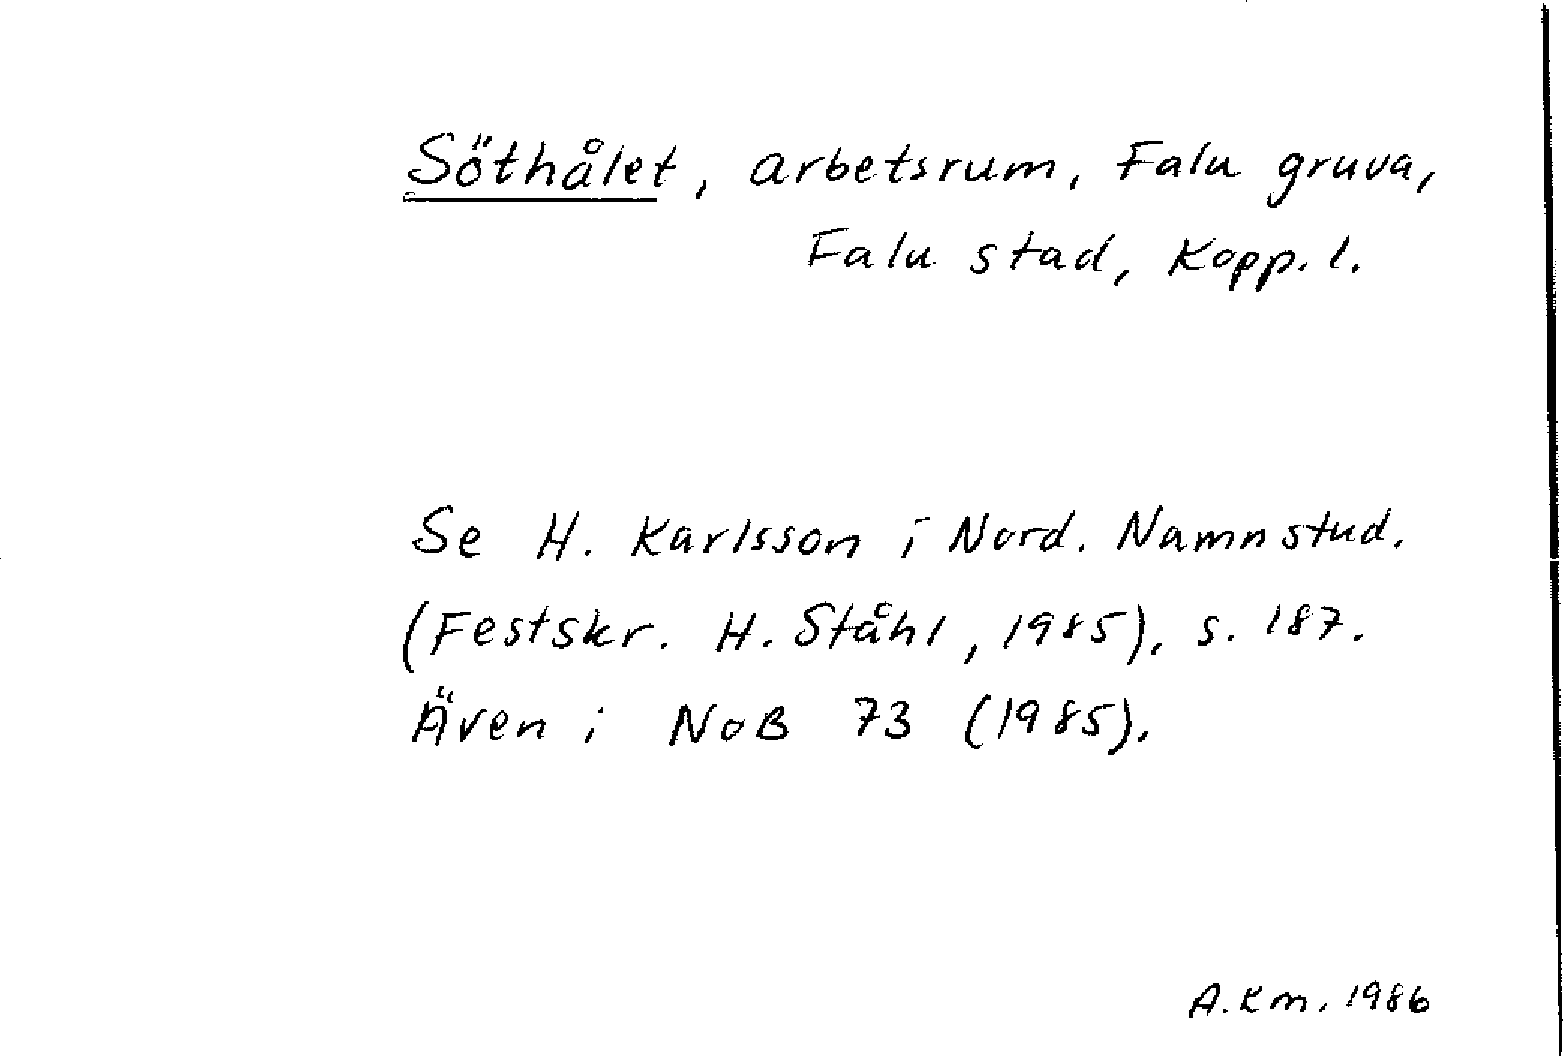 Söthålet, arbetsrum, Falu gruva,
Falu stad, Kopp. l.
Se H. Karlsson i Nord. Namnstud.
(Festskr. H. Ståhl, 1985), s. 187.
Även i NoB 73 (1985).
A.Km. 1986